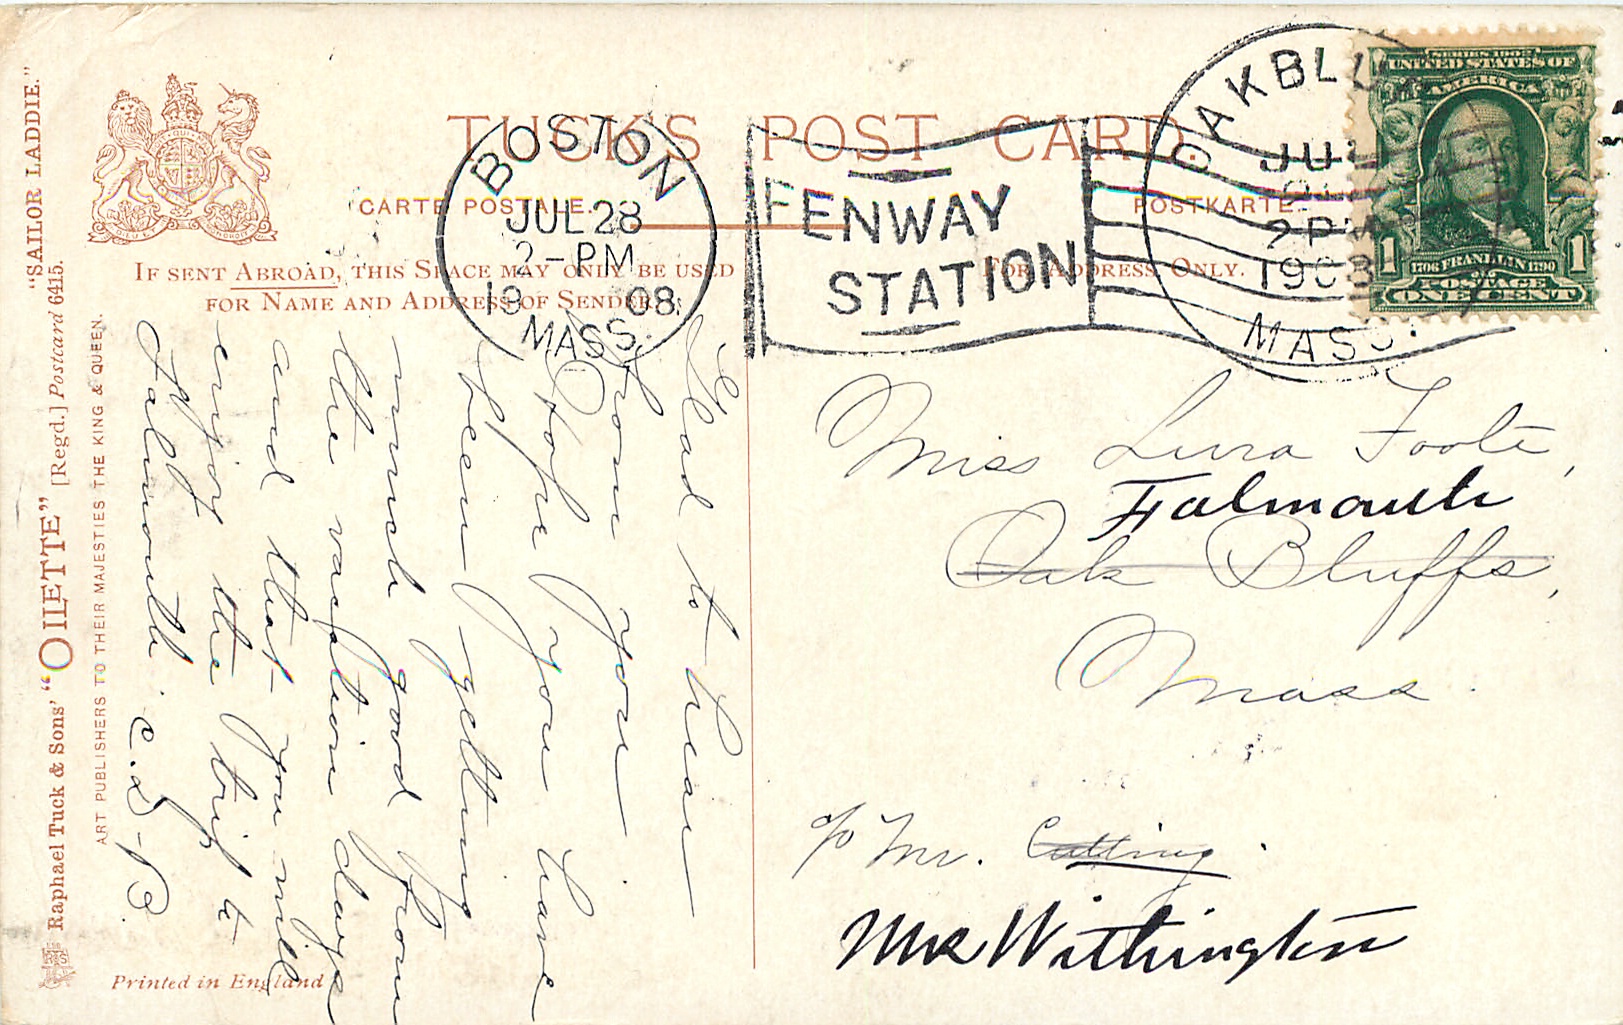 "SAILOR LADDIE."
Raphael Tuck & Sons' "OILETTE" [Regd.] Postcard 6415.
ART PUBLISHERS TO THEIR MAJESTIES THE KING & QUEEN.
Printed in England
TUCK'S POST CARD.
CARTE POSTALE.
POSTKARTE.
IF SENT ABROAD, THIS SPACE MAY ONLY BE USED
FOR NAME AND ADDRESS OF SENDER.
FOR ADDRESS ONLY.
BOSTON
JUL 28
2-PM
19 08
MASS.
FENWAY
STATION
OAK BLU
JUL
2 PM
1908
MASS.
SERIES 1902
UNITED STATES OF
AMERICA
1 1706 FRANKLIN 1790 1
POSTAGE
ONE CENT
Glad to hear
from you
I hope you have
been getting
much good from
the vacation days
and that you will
enjoy the trip to
Falmouth. C.D-B.
Miss Lura Foote,
Falmouth
Oak Bluffs,
Mass.
c/o Mr. Cutting.
Mr Withington